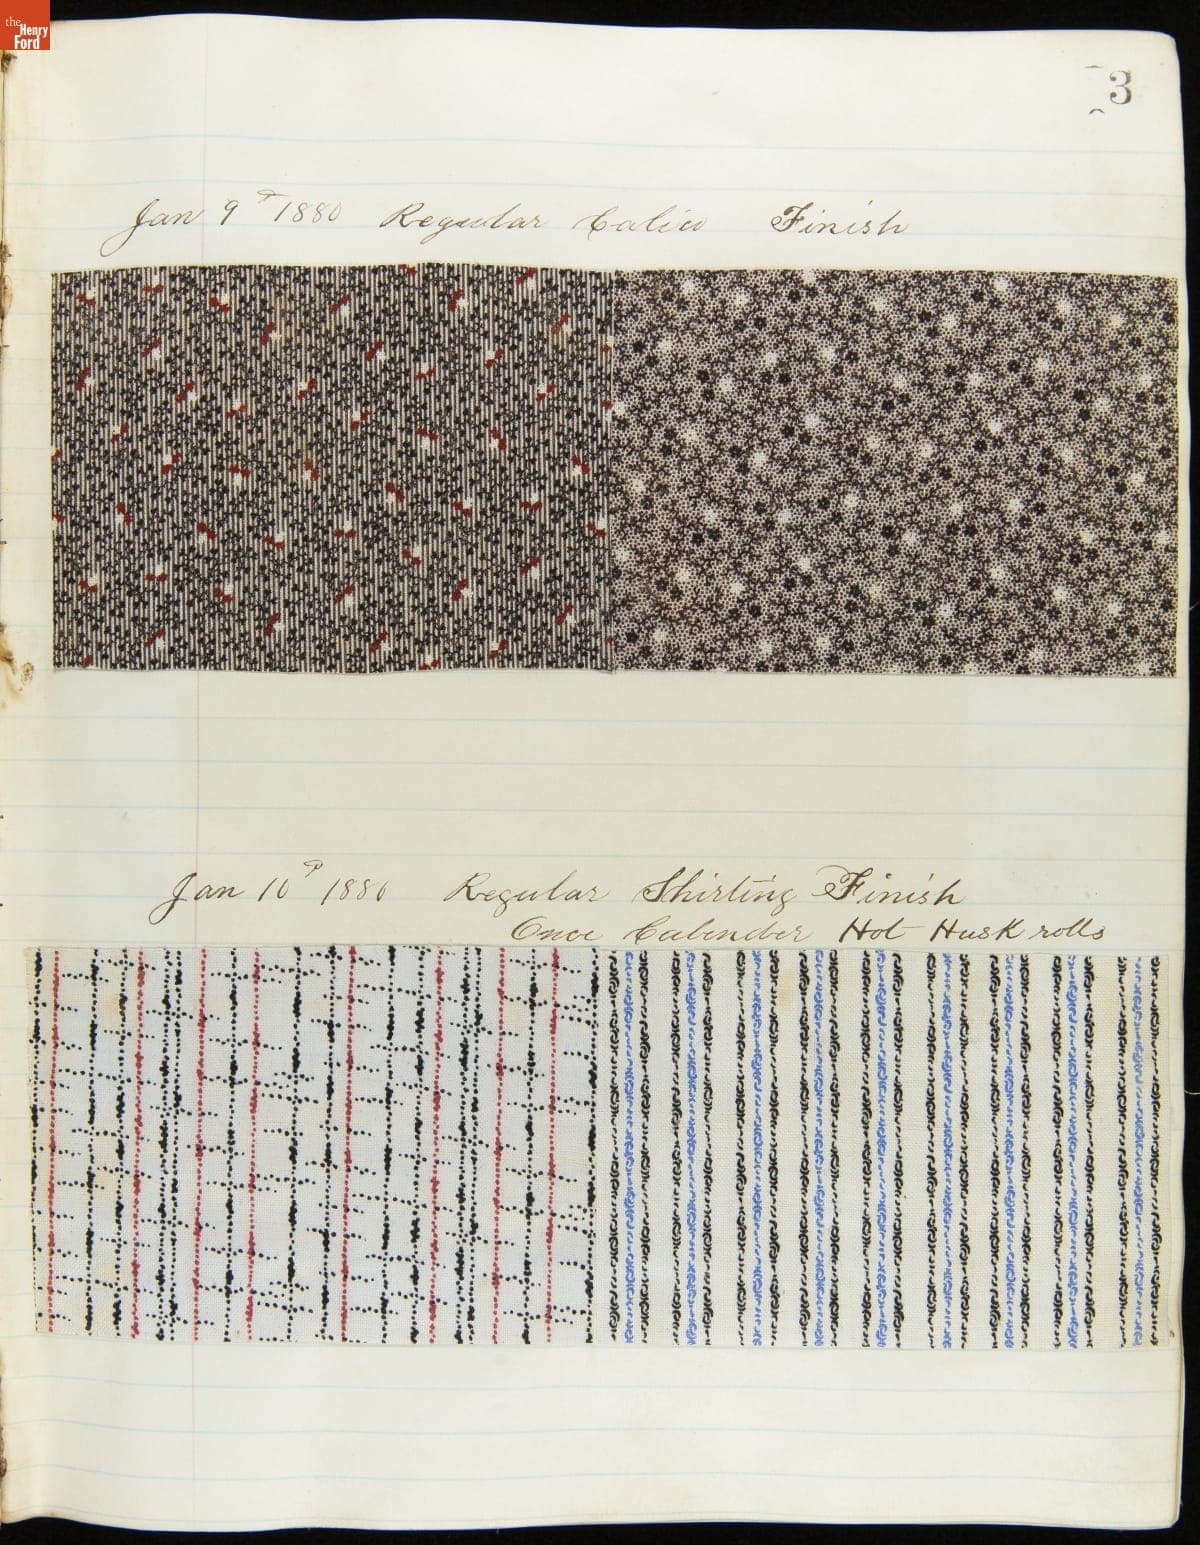 the
Henry
Ford
3
Jan 9th 1880 Regular Calico Finish
Jan 10th 1880 Regular Shirting Finish
Once Calender Hot Husk rolls